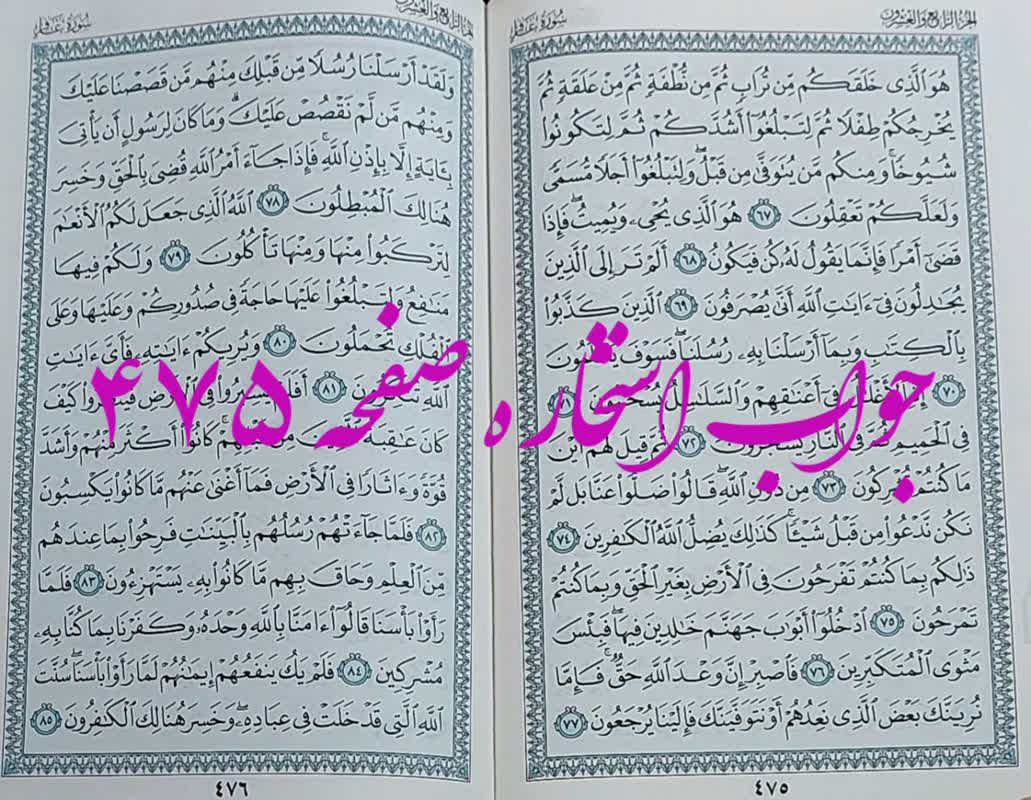 الجزء الرابع والعشرون
سورة غافر
هُوَ الَّذِي خَلَقَكُم مِّن تُرَابٍ ثُمَّ مِن نُّطْفَةٍ ثُمَّ مِنْ عَلَقَةٍ ثُمَّ
يُخْرِجُكُمْ طِفْلًا ثُمَّ لِتَبْلُغُوٓا۟ أَشُدَّكُمْ ثُمَّ لِتَكُونُوا۟
شُيُوخًا ۚ وَمِنكُم مَّن يُتَوَفَّىٰ مِن قَبْلُ ۖ وَلِتَبْلُغُوٓا۟ أَجَلًا مُّسَمًّى
وَلَعَلَّكُمْ تَعْقِلُونَ ٦٧ هُوَ الَّذِي يُحْىِۦ وَيُمِيتُ ۖ فَإِذَا
قَضَىٰٓ أَمْرًا فَإِنَّمَا يَقُولُ لَهُۥ كُن فَيَكُونُ ٦٨ أَلَمْ تَرَ إِلَى الَّذِينَ
يُجَٰدِلُونَ فِىٓ ءَايَٰتِ اللَّهِ أَنَّىٰ يُصْرَفُونَ ٦٩ الَّذِينَ كَذَّبُوا۟
بِالْكِتَٰبِ وَبِمَآ أَرْسَلْنَا بِهِۦ رُسُلَنَا ۖ فَسَوْفَ يَعْلَمُونَ
٧٠ إِذِ الْأَغْلَٰلُ فِىٓ أَعْنَٰقِهِمْ وَالسَّلَٰسِلُ يُسْحَبُونَ ٧١
فِى الْحَمِيمِ ثُمَّ فِى النَّارِ يُسْجَرُونَ ٧٢ ثُمَّ قِيلَ لَهُمْ أَيْنَ
مَا كُنتُمْ تُشْرِكُونَ ٧٣ مِن دُونِ اللَّهِ ۖ قَالُوا۟ ضَلُّوا۟ عَنَّا بَل لَّمْ
نَكُن نَّدْعُوا۟ مِن قَبْلُ شَيْـًٔا ۚ كَذَٰلِكَ يُضِلُّ اللَّهُ الْكَٰفِرِينَ ٧٤
ذَٰلِكُم بِمَا كُنتُمْ تَفْرَحُونَ فِى الْأَرْضِ بِغَيْرِ الْحَقِّ وَبِمَا كُنتُمْ
تَمْرَحُونَ ٧٥ ادْخُلُوٓا۟ أَبْوَٰبَ جَهَنَّمَ خَٰلِدِينَ فِيهَا ۖ فَبِئْسَ
مَثْوَى الْمُتَكَبِّرِينَ ٧٦ فَاصْبِرْ إِنَّ وَعْدَ اللَّهِ حَقٌّ ۚ فَإِمَّا
نُرِيَنَّكَ بَعْضَ الَّذِى نَعِدُهُمْ أَوْ نَتَوَفَّيَنَّكَ فَإِلَيْنَا يُرْجَعُونَ ٧٧
٤٧٥
جواب استخاره صفحه ۴۷۵
الجزء الرابع والعشرون
سورة غافر
وَلَقَدْ أَرْسَلْنَا رُسُلًا مِّن قَبْلِكَ مِنْهُم مَّن قَصَصْنَا عَلَيْكَ
وَمِنْهُم مَّن لَّمْ نَقْصُصْ عَلَيْكَ ۗ وَمَا كَانَ لِرَسُولٍ أَن يَأْتِىَ
بِـَٔايَةٍ إِلَّا بِإِذْنِ اللَّهِ ۚ فَإِذَا جَآءَ أَمْرُ اللَّهِ قُضِىَ بِالْحَقِّ وَخَسِرَ
هُنَالِكَ الْمُبْطِلُونَ ٧٨ اللَّهُ الَّذِى جَعَلَ لَكُمُ الْأَنْعَٰمَ
لِتَرْكَبُوا۟ مِنْهَا وَمِنْهَا تَأْكُلُونَ ٧٩ وَلَكُمْ فِيهَا
مَنَٰفِعُ وَلِتَبْلُغُوا۟ عَلَيْهَا حَاجَةً فِى صُدُورِكُمْ وَعَلَيْهَا وَعَلَى
الْفُلْكِ تُحْمَلُونَ ٨٠ وَيُرِيكُمْ ءَايَٰتِهِۦ فَأَىَّ ءَايَٰتِ
اللَّهِ تُنكِرُونَ ٨١ أَفَلَمْ يَسِيرُوا۟ فِى الْأَرْضِ فَيَنظُرُوا۟ كَيْفَ
كَانَ عَٰقِبَةُ الَّذِينَ مِن قَبْلِهِمْ ۚ كَانُوٓا۟ أَكْثَرَ مِنْهُمْ وَأَشَدَّ
قُوَّةً وَءَاثَارًا فِى الْأَرْضِ فَمَآ أَغْنَىٰ عَنْهُم مَّا كَانُوا۟ يَكْسِبُونَ
٨٢ فَلَمَّا جَآءَتْهُمْ رُسُلُهُم بِالْبَيِّنَٰتِ فَرِحُوا۟ بِمَا عِندَهُم
مِّنَ الْعِلْمِ وَحَاقَ بِهِم مَّا كَانُوا۟ بِهِۦ يَسْتَهْزِءُونَ ٨٣ فَلَمَّا
رَأَوْا۟ بَأْسَنَا قَالُوٓا۟ ءَامَنَّا بِاللَّهِ وَحْدَهُۥ وَكَفَرْنَا بِمَا كُنَّا بِهِۦ
مُشْرِكِينَ ٨٤ فَلَمْ يَكُ يَنفَعُهُمْ إِيمَٰنُهُمْ لَمَّا رَأَوْا۟ بَأْسَنَا ۖ سُنَّتَ
اللَّهِ الَّتِى قَدْ خَلَتْ فِى عِبَادِهِۦ ۖ وَخَسِرَ هُنَالِكَ الْكَٰفِرُونَ ٨٥
٤٧٦